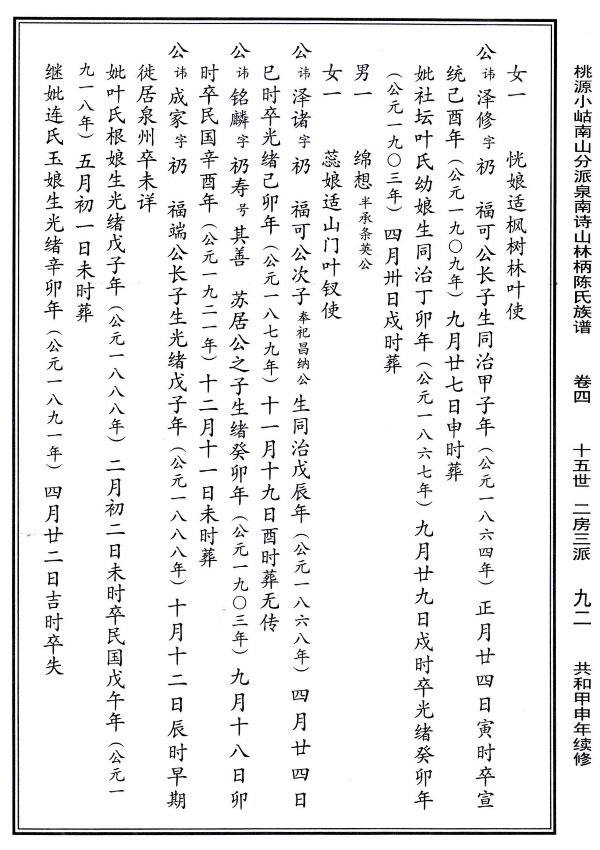 桃源小岵南山分派泉南诗山林柄陈氏族谱 卷四 十五世 二房三派 九二 共和甲申年续修
女一 恍娘适枫树林叶使
公讳泽修字礽 福可公长子生同治甲子年（公元一八六四年）正月廿四日寅时卒宣
统己酉年（公元一九〇九年）九月廿七日申时葬
妣社坛叶氏幼娘生同治丁卯年（公元一八六七年）九月廿九日戍时卒光绪癸卯年
（公元一九〇三年）四月卅日戍时葬
男一 绵想半承条英公
女一 蕊娘适山门叶钗使
公讳泽诸字礽 福可公次子奉祀昌纳公生同治戊辰年（公元一八六八年）四月廿四日
巳时卒光绪己卯年（公元一八七九年）十一月十九日酉时葬无传
公讳铭麟字礽寿号其善 苏居公之子生绪癸卯年（公元一九〇三年）九月十八日卯
时卒民国辛酉年（公元一九二一年）十二月十一日未时葬
公讳成家字礽 福端公长子生光绪戊子年（公元一八八八年）十月十二日辰时早期
徙居泉州卒未详
妣叶氏根娘生光绪戊子年（公元一八八八年）二月初二日未时卒民国戊午年（公元一
九一八年）五月初一日未时葬
继妣连氏玉娘生光绪辛卯年（公元一八九一年）四月廿二日吉时卒失